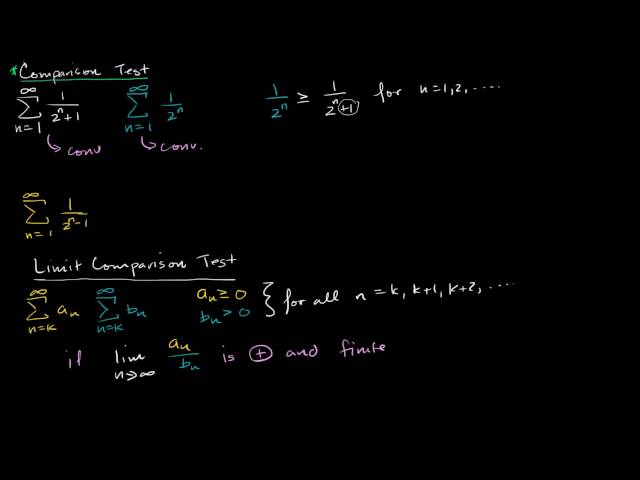 *Comparison Test
∞∑n=1 1/(2^n+1) ∞∑n=1 1/2^n 1/2^n ≥ 1/(2^n+1) for n=1,2,....
↳ conv ↳ conv.
∞∑n=1 1/(2^n-1)
Limit Comparison Test
∞∑n=k an ∞∑n=k bn an ≥ 0 bn > 0 } for all n = k, k+1, k+2, ....
if lim n→∞ an/bn is + and finite